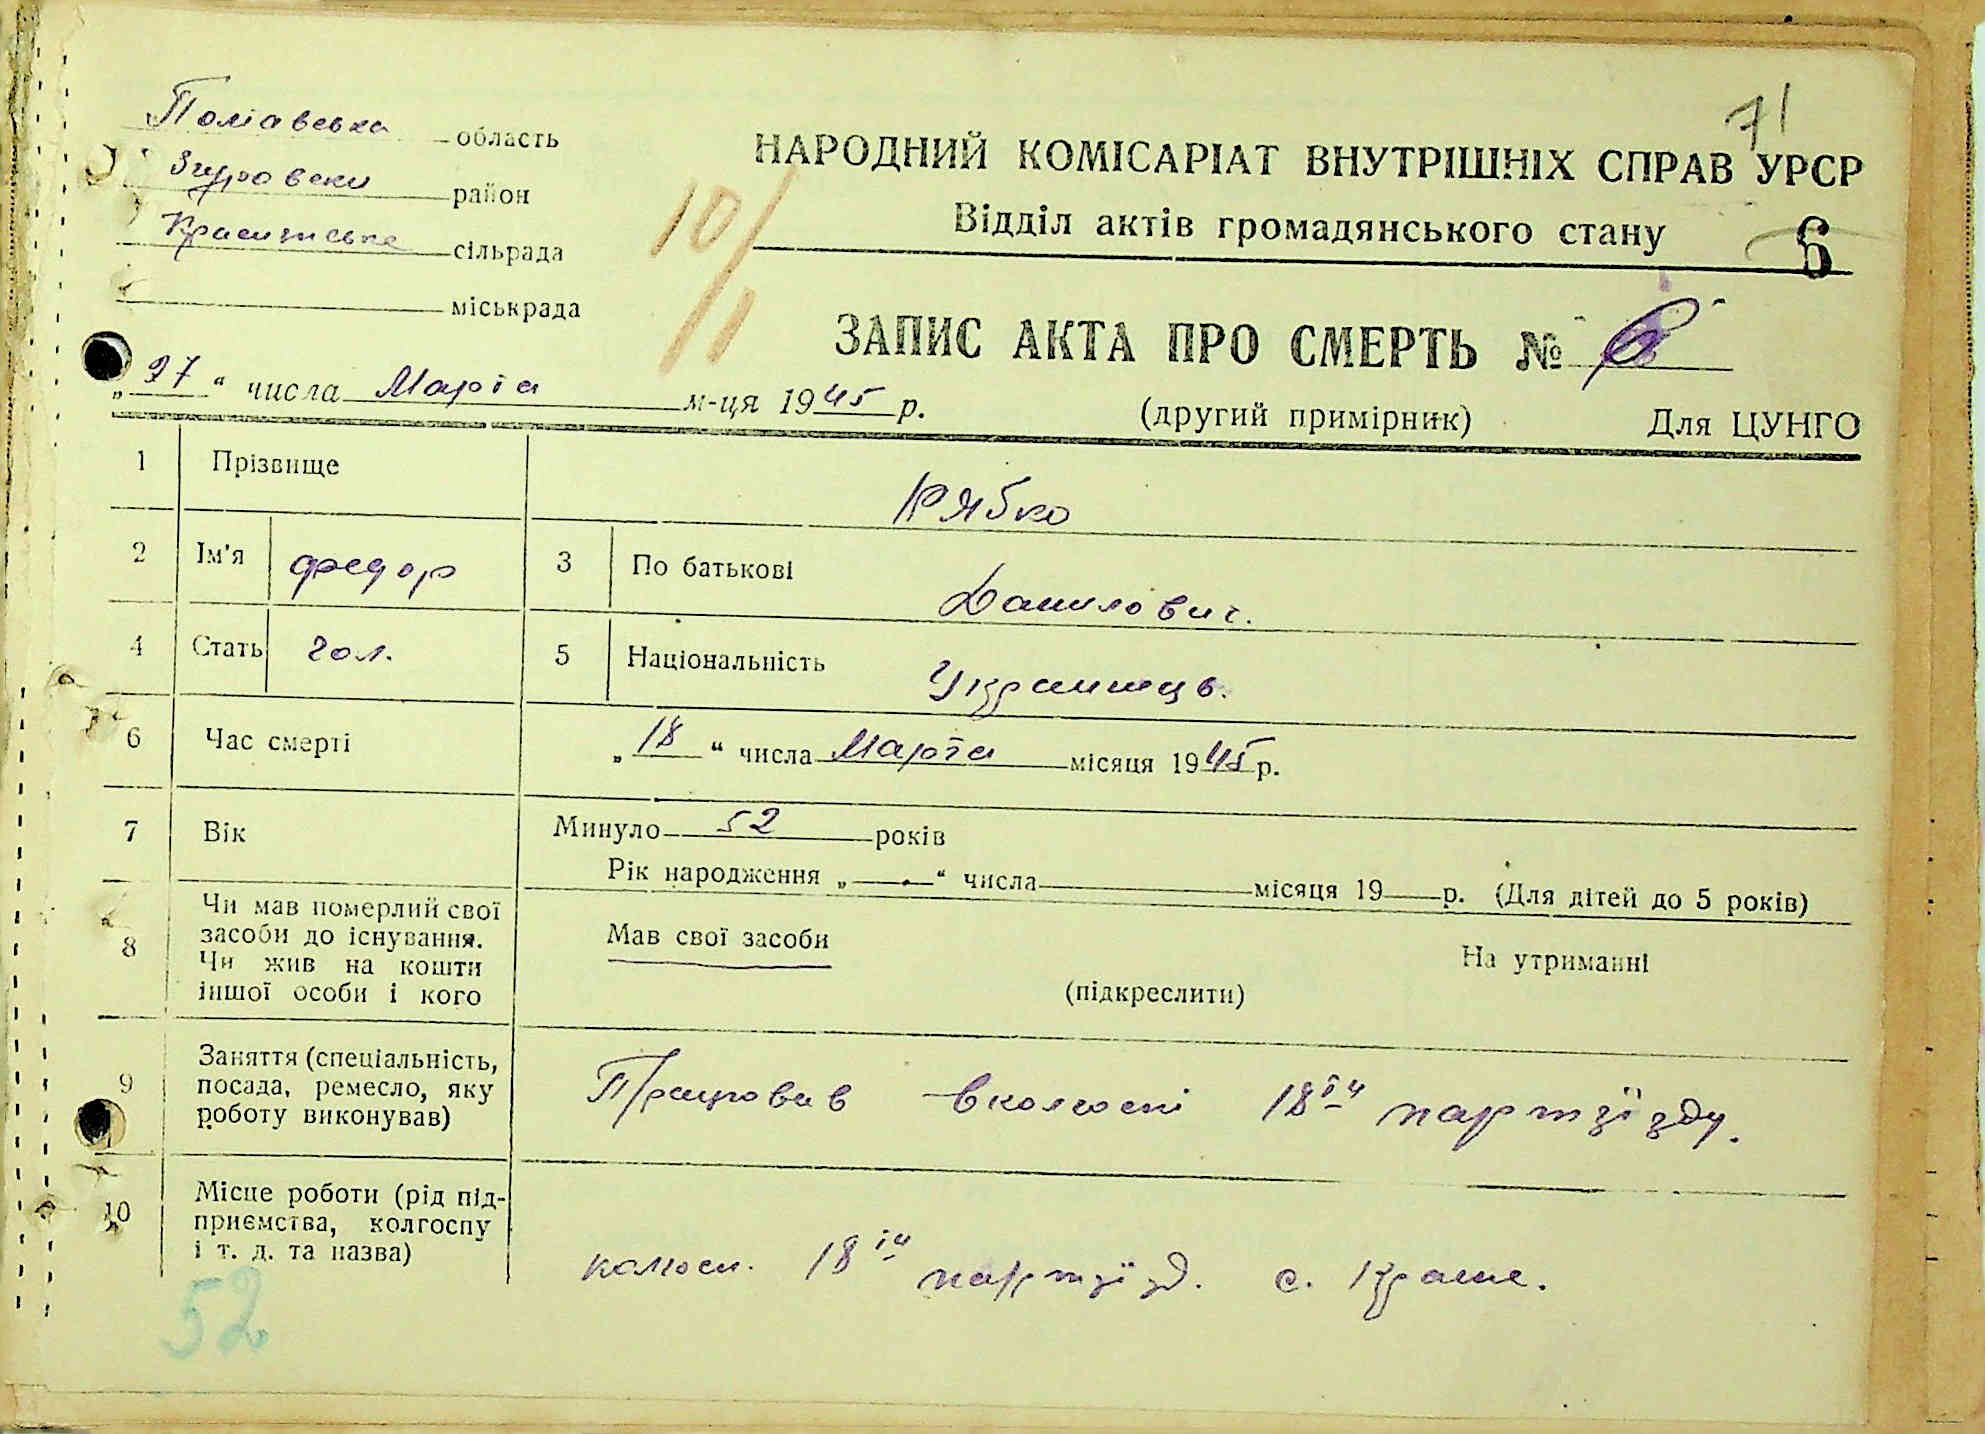 71
Полтавська область
Згуровски район
сільрада
міськрада
НАРОДНИЙ КОМІСАРІАТ ВНУТРІШНІХ СПРАВ УРСР
Відділ актів громадянського стану 6
10/11
ЗАПИС АКТА ПРО СМЕРТЬ № 6
„27“ числа Марта м-ця 1945 р.
(другий примірник) Для ЦУНГО
1 Прізвище Рябко
2 Ім'я Федор 3 По батькові Данилович.
4 Стать чол. 5 Національність Українець.
6 Час смерті „18“ числа Марта місяця 1945 р.
7 Вік Минуло 52 років
Рік народження „ “ числа місяця 19 р. (Для дітей до 5 років)
8 Чи мав померлий свої
засоби до існування.
Чи жив на кошти
іншої особи і кого
Мав свої засоби На утриманні
(підкреслити)
9 Заняття (спеціальність,
посада, ремесло, яку
роботу виконував)
Працював в колгоспі 18 партзїзду.
10 Місце роботи (рід під-
приємства, колгоспу
і т. д. та назва)
18 партзїзд. с.
52